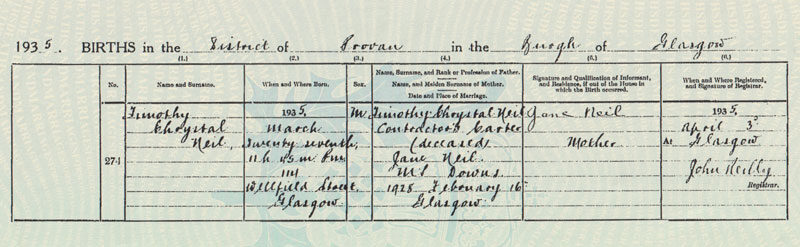 1935. BIRTHS in the District of Provan in the Burgh of Glasgow
(1.) (2.) (3.) (4.) (5.) (6.)
No. Name and Surname. When and Where Born. Sex. Name, Surname, and Rank or Profession of Father. Name, and Maiden Surname of Mother. Date and Place of Marriage. Signature and Qualification of Informant, and Residence, if out of the House in which the Birth occurred. When and Where Registered, and Signature of Registrar.
271
Timothy
Chrystal
Neil,
1935,
March
Twenty seventh,
11 h. 45 m. P.M.
114
Wellfield Street
Glasgow.
M.
Timothy Chrystal Neil
Contractor's Carter
(deceased)
Jane Neil
M.S. Downs
1928 February 16
Glasgow.
Jane Neil
Mother
1935,
April 3
At Glasgow
John Reilly
Registrar.